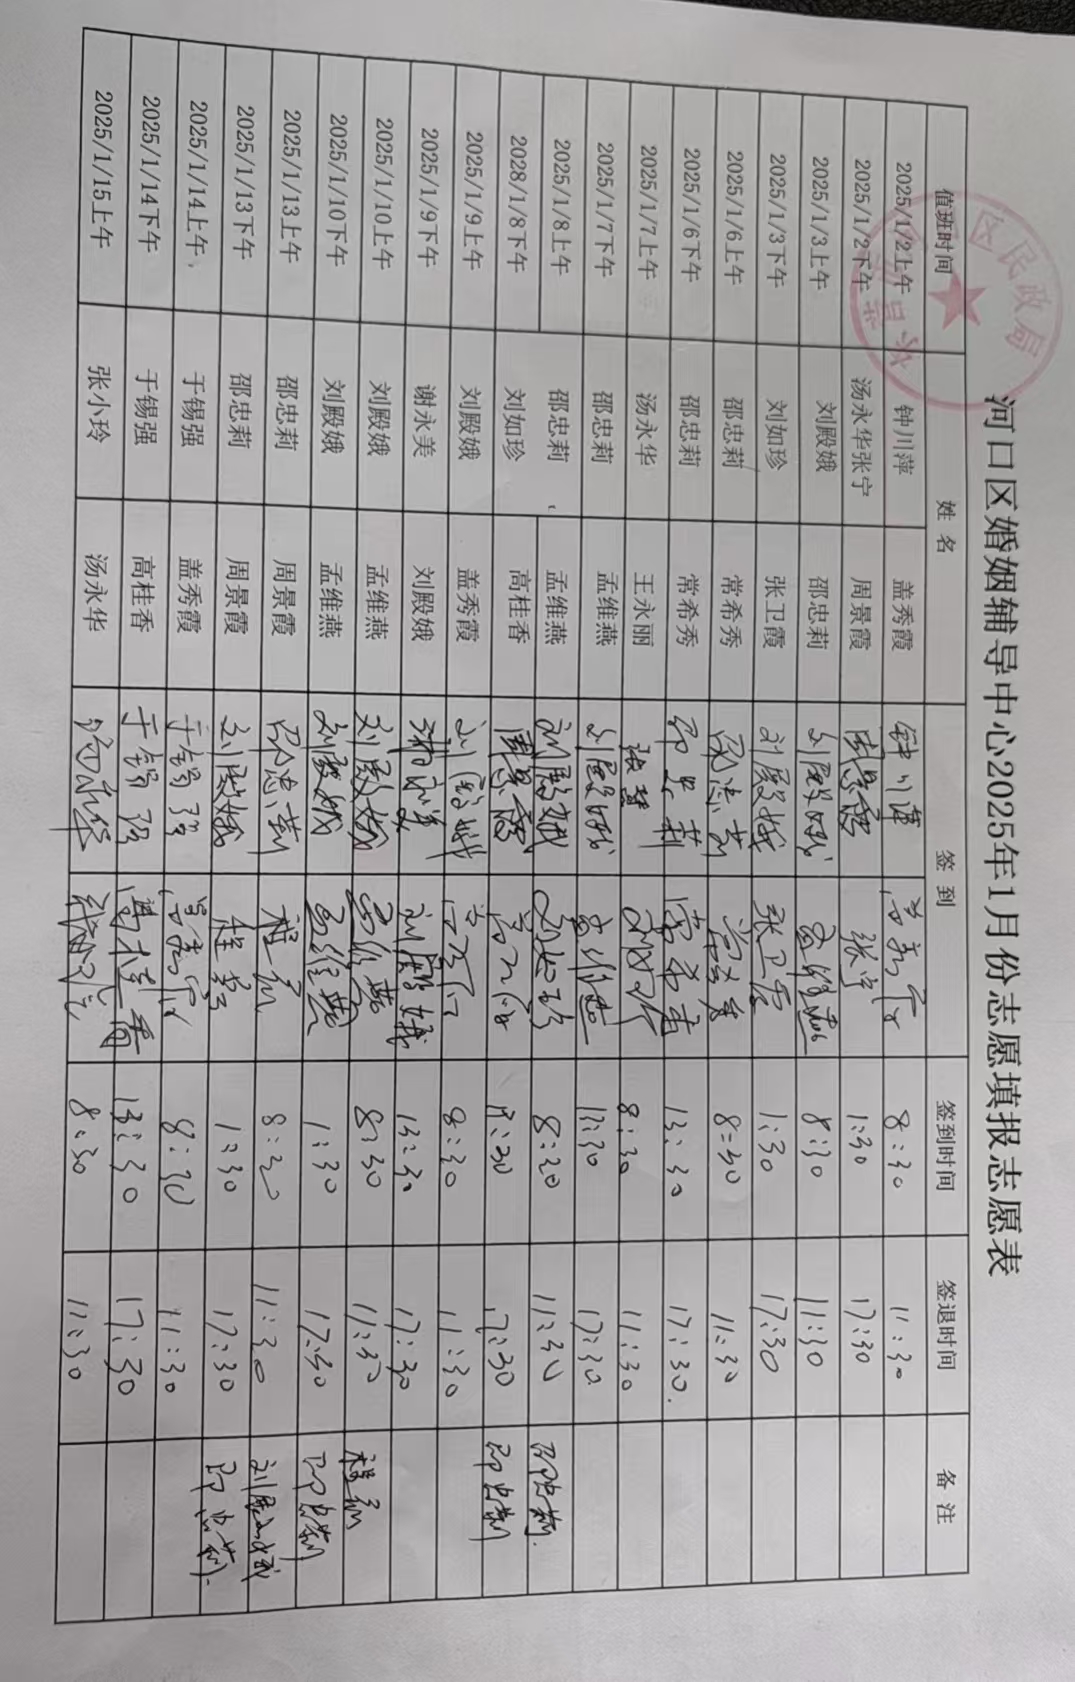 河口区婚姻辅导中心2025年1月份志愿填报志愿表
值班时间 姓 名 签 到 签到时间 签退时间 备 注
2025/1/2上午 钟川萍 盖秀霞 钟川萍 8:30 11:30
2025/1/2下午 汤永华张宁 周景霞 周景霞 张宁 1:30 17:30
2025/1/3上午 刘殿娥 邵忠莉 刘殿娥 孟维燕 8:30 11:30
2025/1/3下午 刘如珍 张卫霞 刘殿娥 张卫霞 1:30 17:30
2025/1/6上午 邵忠莉 常希秀 邵忠莉 常希秀 8:30 11:30
2025/1/6下午 邵忠莉 常希秀 邵忠莉 常希秀 13:30 17:30.
2025/1/7上午 汤永华 王永丽 张慧 8:30 11:30
2025/1/7下午 邵忠莉 孟维燕 刘殿娥 孟维燕 13:30 17:30
2025/1/8上午 邵忠莉 孟维燕 刘殿娥 刘如珍 8:30 11:30 邵忠莉.
2028/1/8下午 刘如珍 高桂香 周景霞 13:30 17:30 邵忠莉
2025/1/9上午 刘殿娥 盖秀霞 刘殿娥 8:30 11:30
2025/1/9下午 谢永美 刘殿娥 谢永美 刘殿娥 13:30 17:30
2025/1/10上午 刘殿娥 孟维燕 刘殿娥 孟维燕 8:30 11:30
2025/1/10下午 刘殿娥 孟维燕 刘殿娥 孟维燕 1:30 17:30 邵忠莉
2025/1/13上午 邵忠莉 周景霞 邵忠莉 8:30 11:30 刘殿娥
2025/1/13下午 邵忠莉 周景霞 刘殿娥 1:30 17:30 邵忠莉.
2025/1/14上午 于锡强 盖秀霞 于锡强 8:30 11:30
2025/1/14下午 于锡强 高桂香 于锡强 高桂香 13:30 17:30
2025/1/15上午 张小玲 汤永华 汤永华 8:30 11:30
区民政局